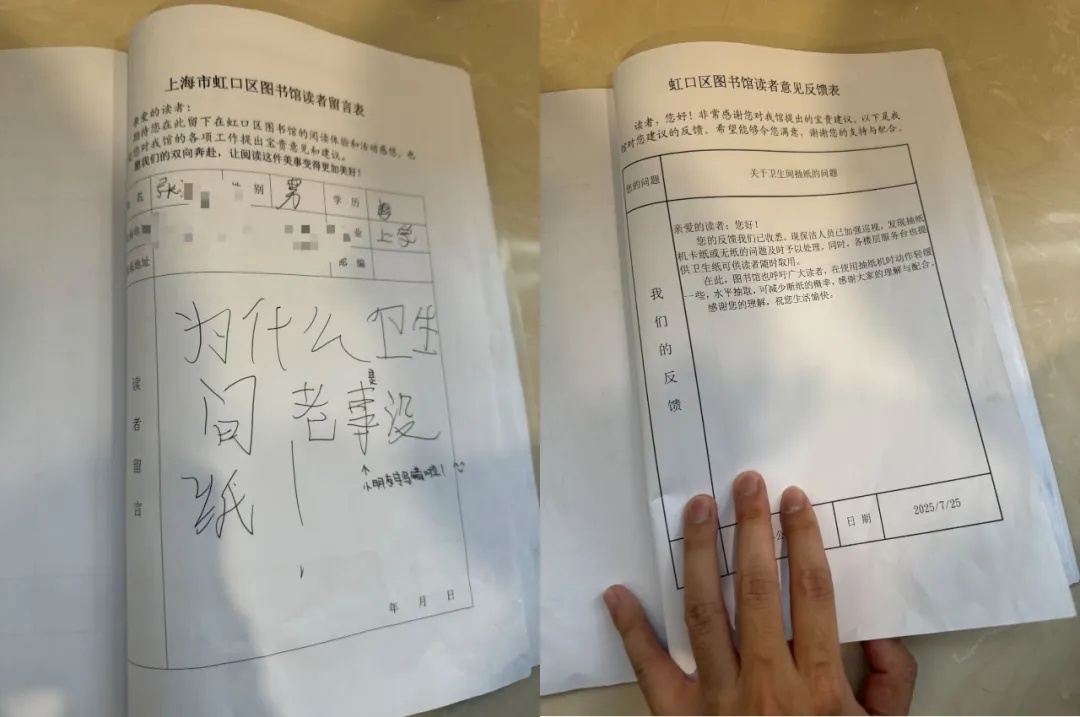 上海市虹口区图书馆读者留言表
亲爱的读者:
期待您在此留下在虹口区图书馆的阅读体验和活动感想,也
您对我馆的各项工作提出宝贵意见和建议。
我们的双向奔赴,让阅读这件美事变得更加美好!
名
别
男
学 历
业
上学
地址
邮 编
读者留言
为什么卫生
间老事没
是
纸!
↑
小朋友字写错啦!
年 月 日
虹口区图书馆读者意见反馈表
读者,您好!非常感谢您对我馆提出的宝贵建议。以下是我
馆对您建议的反馈。希望能够令您满意,谢谢您的支持与配合。
您的问题
关于卫生间抽纸的问题
我们的反馈
亲爱的读者:您好!
您的反馈我们已收悉。现保洁人员已加强巡视,发现抽纸
机卡纸或无纸的问题及时予以处理。同时,各楼层服务台也提
供卫生纸可供读者随时取用。
在此,图书馆也呼吁广大读者,在使用抽纸机时动作轻缓
一些,水平抽取,可减少断纸的概率。感谢大家的理解与配合。
感谢您的理解,祝您生活愉快。
日 期
2025/7/25